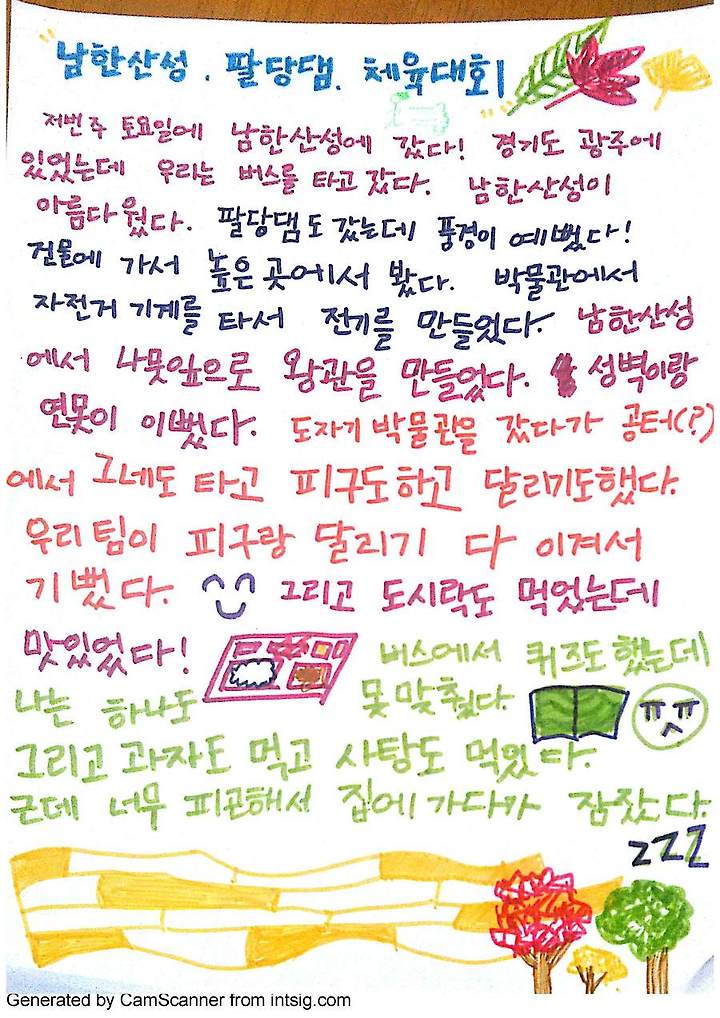 "남한산성. 팔당댐. 체육대회"
저번주 토요일에 남한산성에 갔다! 경기도 광주에
있었는데 우리는 버스를 타고 갔다. 남한산성이
아름다웠다. 팔당댐도 갔는데 풍경이 예뻤다!
건물에 가서 높은 곳에서 봤다. 박물관에서
자전거 기계를 타서 전기를 만들었다. 남한산성
에서 나뭇잎으로 왕관을 만들었다. 성벽이랑
연못이 이뻤다. 도자기 박물관을 갔다가 공터(?)
에서 그네도 타고 피구도하고 달리기도했다.
우리 팀이 피구랑 달리기 다 이겨서
기뻤다. 그리고 도시락도 먹었는데
맛있었다! 버스에서 퀴즈도 했는데
나는 하나도 못 맞췄다.
ㅠㅠ
그리고 과자도 먹고 사탕도 먹었다.
근데 너무 피곤해서 집에 가다가 잠잤다.
zzz
Generated by CamScanner from intsig.com